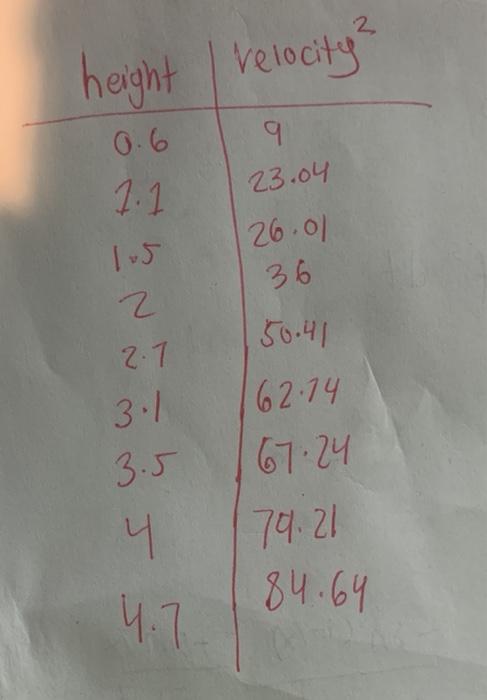 height velocity²
0.6 9
1.1 23.04
1.5 26.01
2 36
2.7 50.41
3.1 62.74
3.5 67.24
4 79.21
4.7 84.64